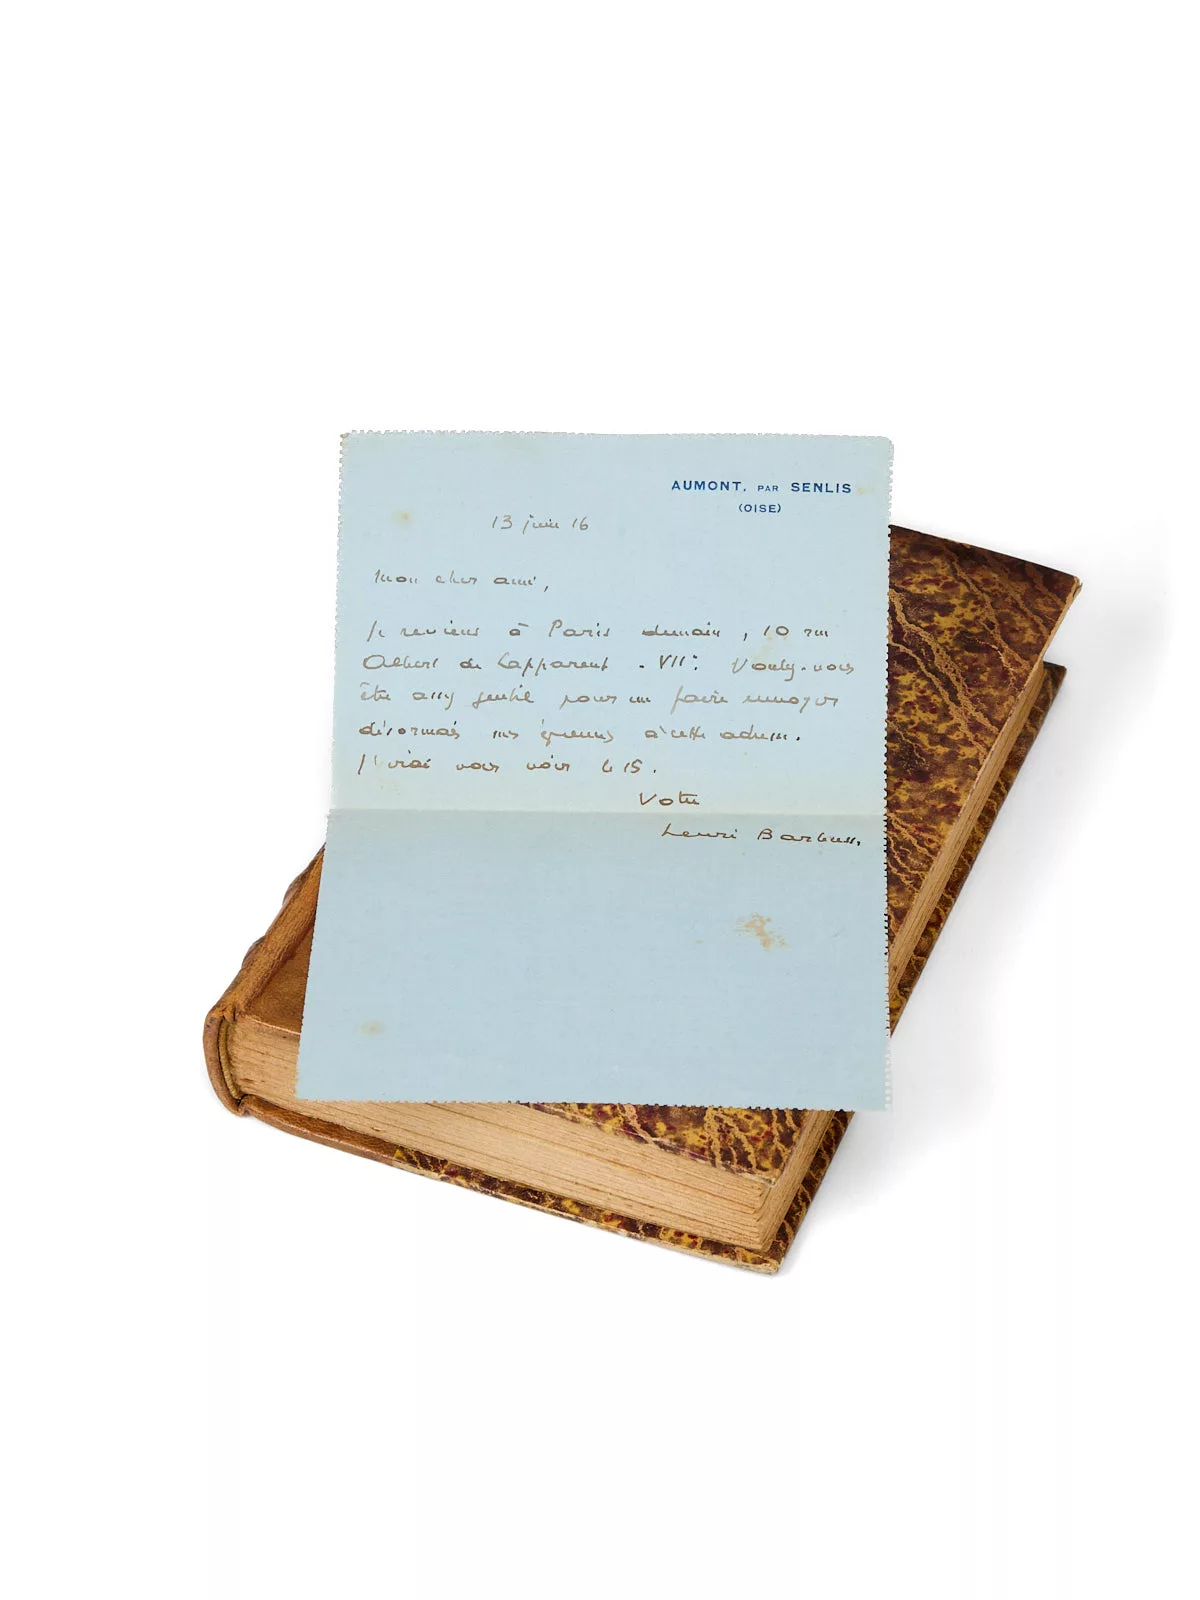 AUMONT, PAR SENLIS
(OISE)
13 juin 16
Mon cher ami,
Je reviens à Paris demain, 10 rue
Albert de Lapparent - VIIe. Voulez-vous
être assez gentil pour me faire envoyer
désormais mes épreuves à cette adresse.
J'irai vous voir le 15.
Votre
Henri Barbusse